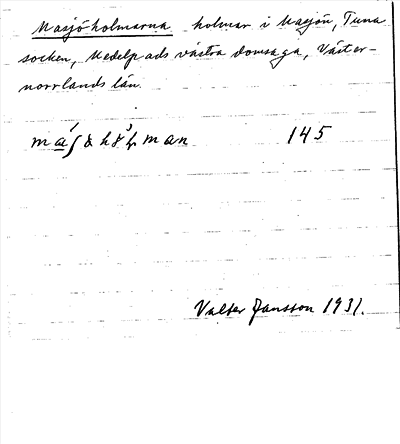 Masjöholmarna holmar i Masjön, Tuna
socken, Medelpads västra domsaga, Väster-
norrlands län.
145
Valter Jansson 1931.